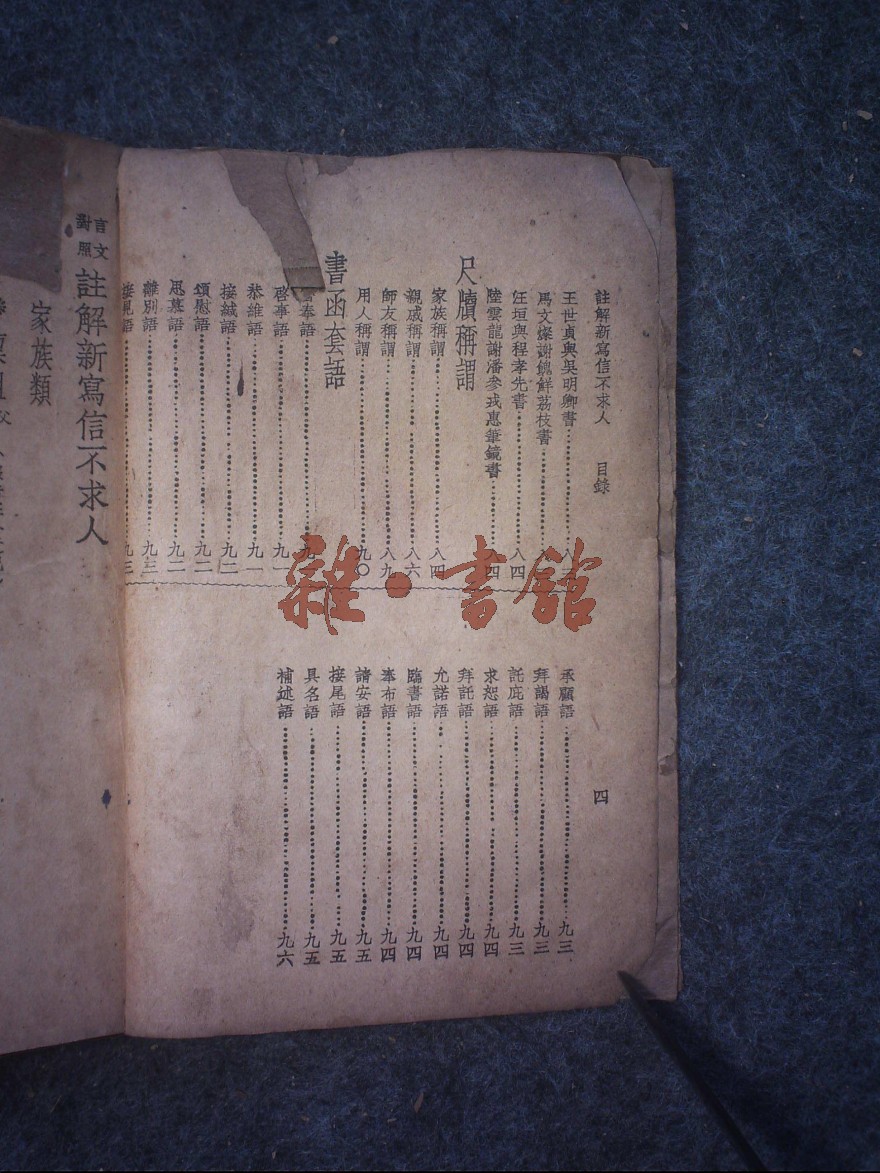 註解新寫信不求人 目錄 四
王世貞與吳明卿書
馬文燦謝餽鮮荔枝書
汪垣與程孝先書 八四
陸雲龍謝潘參戎惠筆鏡書
尺牘稱謂
家族稱謂 八四
親戚稱謂 八六
師友稱謂 八九
用人稱謂 九〇
書函套語
啓事語 九一
恭維語 九一
接緘語 九二
頌慰語 九二
思慕語 九二
離別語 九三
承顧語 九三
拜謁語 九三
託庇語 九三
求恕語 九四
拜託語 九四
允諾語 九四
臨書語 九四
奉布語 九四
請安語 九五
接尾語 九五
具名語 九五
補述語 九六
言文對照 註解新寫信不求人
家族類
雜·書館